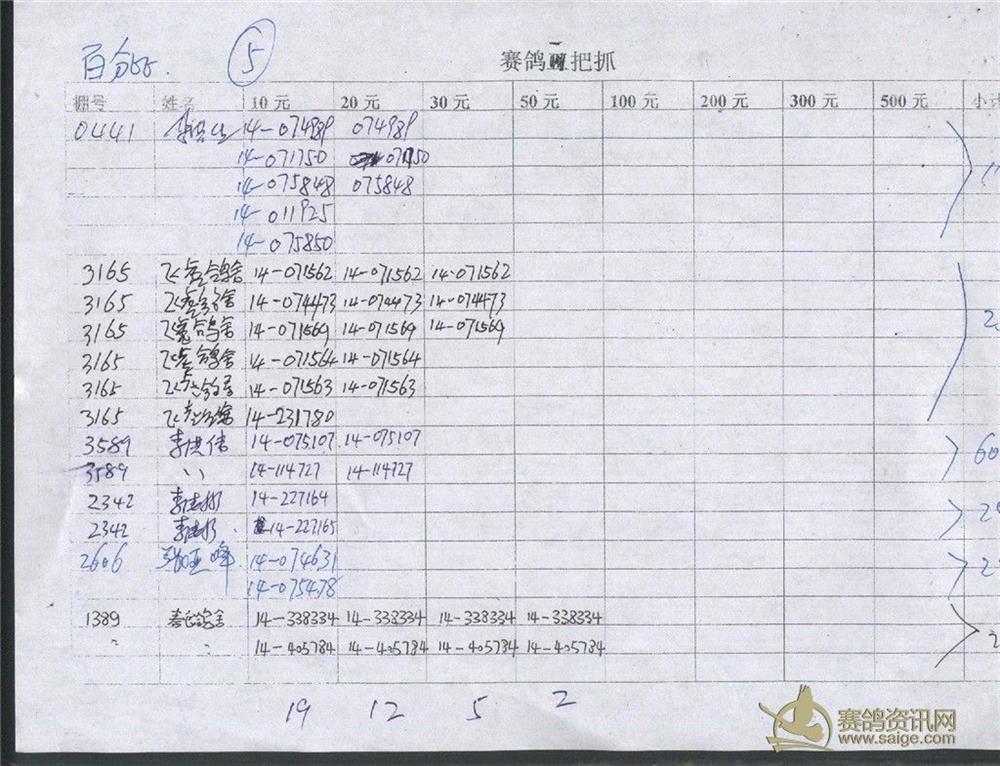 百分55. ⑤
赛鸽 把抓
棚号 姓名 10元 20元 30元 50元 100元 200元 300元 500元 小计
0441 14-074989 074989
14-071750 071750
14-075848 075848
14-011925
14-075850
3165 飞 鸽舍 14-071562 14-071562 14-071562
3165 飞 鸽舍 14-074473 14-074473 14-074473
3165 飞 鸽舍 14-071569 14-071569 14-071569
3165 飞 鸽舍 14-071564 14-071564
3165 飞 鸽舍 14-071563 14-071563
3165 飞 鸽舍 14-231780
3589 李洪伟 14-075107 14-075107
60
3589 〃 14-114727 14-114727
2342 李 14-227164
2342 李 14-227165
2606 张亚峰 14-074631
14-075478
1389 鸽舍 14-338334 14-338334 14-338334 14-338334
〃 〃 14-405784 14-405784 14-405784 14-405784
19 12 5 2
赛鸽资讯网
www.saige.com